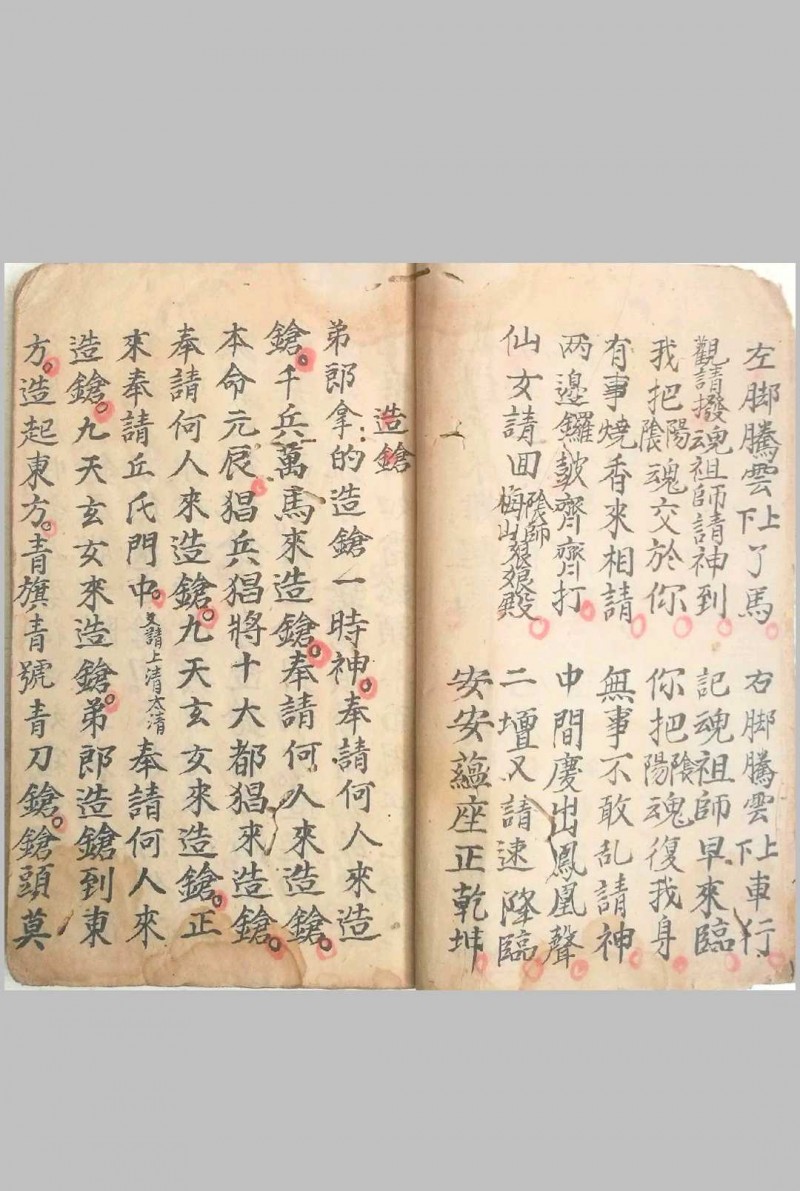 左脚騰雲上下了馬。右脚騰雲上下車行。
觀請撥魂祖師請神到。記魂祖師早來臨。
我把陽陰魂交於你。你把陰陽魂復我身。
有事燒香來相請。無事不敢乱請神。
两邊鑼皷齊齊打。中間慶出鳳凰聲。
仙女請回陰師梅山殿。二壇又請速降臨。
安安蕴座正乾坤。
造鎗
弟郎拿的造鎗一時神。奉請何人來造
鎗。千兵萬馬來造鎗。奉請何人來造鎗。
本命元辰。猖兵猖將十大都猖來造鎗。
奉請何人來造鎗。九天玄女來造鎗。正
來奉請丘氏門中。又請上清太清奉請何人來
造鎗。九天玄女來造鎗。弟郎造鎗到東
方。造起東方。青旗青號青刀鎗。鎗頭莫